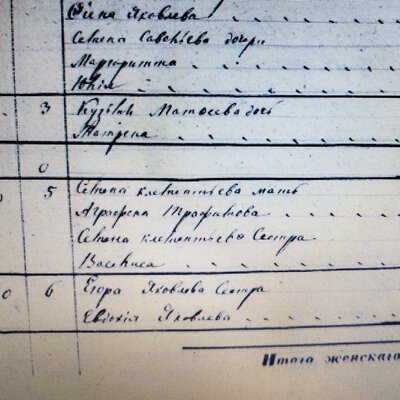 Яковлева
Семена Савельева дочери
Маргаритта
Юлія
3 Кузьмы Матвеева дочь
Матрена
0
5 Семена клементьева мать
Аграфена Трафимова
Семена клементьева Сестра
Василиса
0 6 Егора Яковлева Сестра
Евдокія Яковлева
Итого женскаго